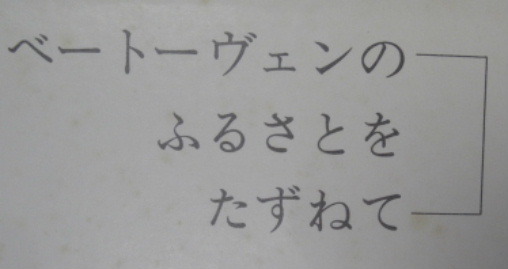 ベートーヴェンの
ふるさとを
たずねて